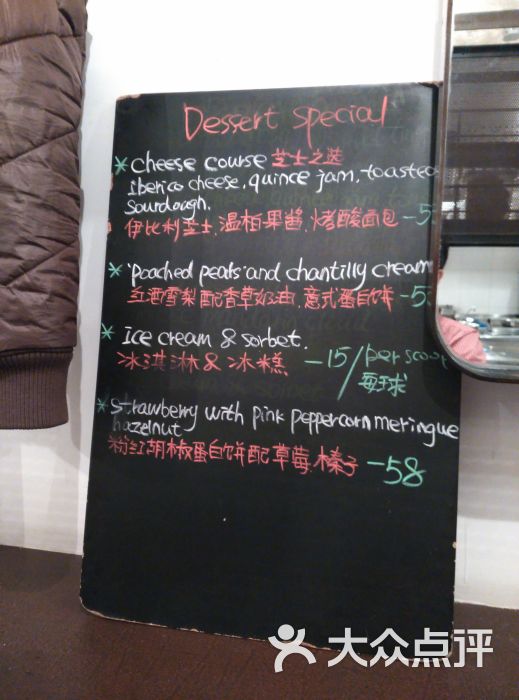 Dessert Special
* cheese course 芝士之选
Iberico cheese, quince jam, toasted
sourdough.
伊比利芝士.温柏果酱.烤酸面包 -5
* 'poached pears' and chantilly cream
红酒雪梨配香草奶油.意式蛋白饼 -5
* Ice cream & sorbet.
冰淇淋&冰糕. -15/per scoop
每球
* strawberry with pink peppercorn meringue
hazelnut
粉红胡椒蛋白饼配草莓.榛子 -58
大众点评